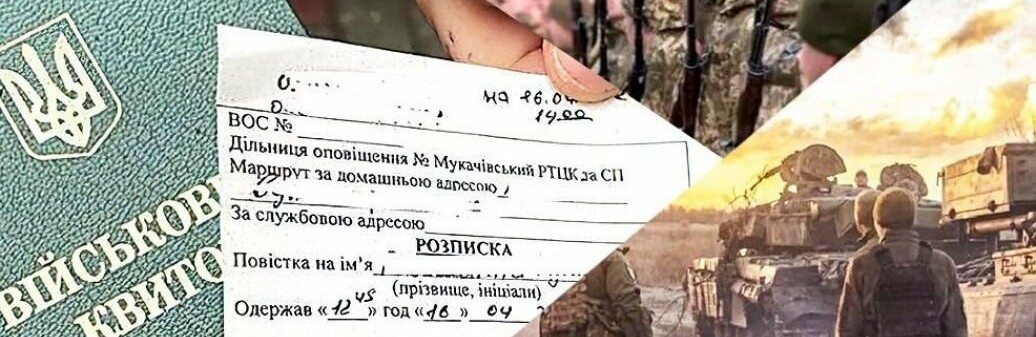 ВІЙСЬКОВ
КВИТО
на 16.04
14.00
ВОС №
Дільниця оповіщення № Мукачівський РТЦК да СП
Маршрут за домашньою адресою
За службовою адресою
РОЗПИСКА
Повістка на ім'я
(прізвище, ініціали)
Одержав «12 45» год «16» 04